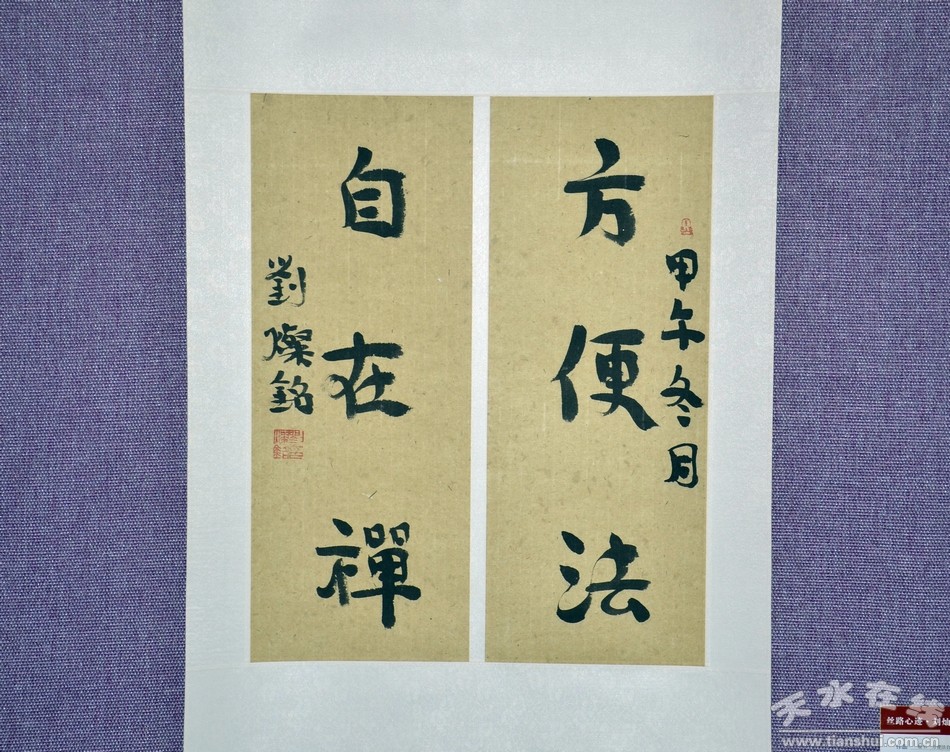 甲午冬月
方便法
自在禪
劉燦銘
丝路心迹·刘灿
天水在线
www.tianshui.com.cn